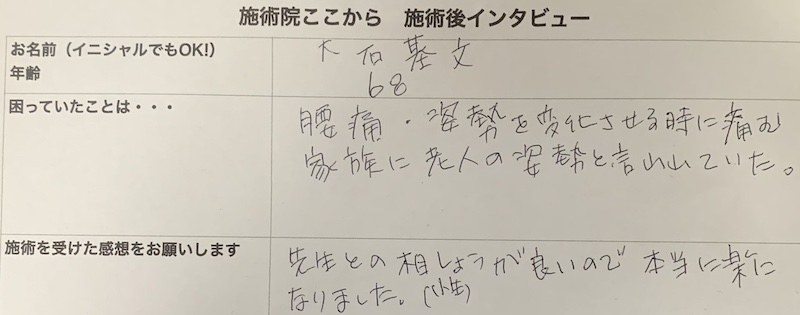 施術院ここから 施術後インタビュー
お名前（イニシャルでもOK!） 大石基文
年齢 68
困っていたことは・・・
腰痛・姿勢を変化させる時に痛む
家族に老人の姿勢と言われていた。
施術を受けた感想をお願いします
先生との相しょうが良いので 本当に楽に
なりました。